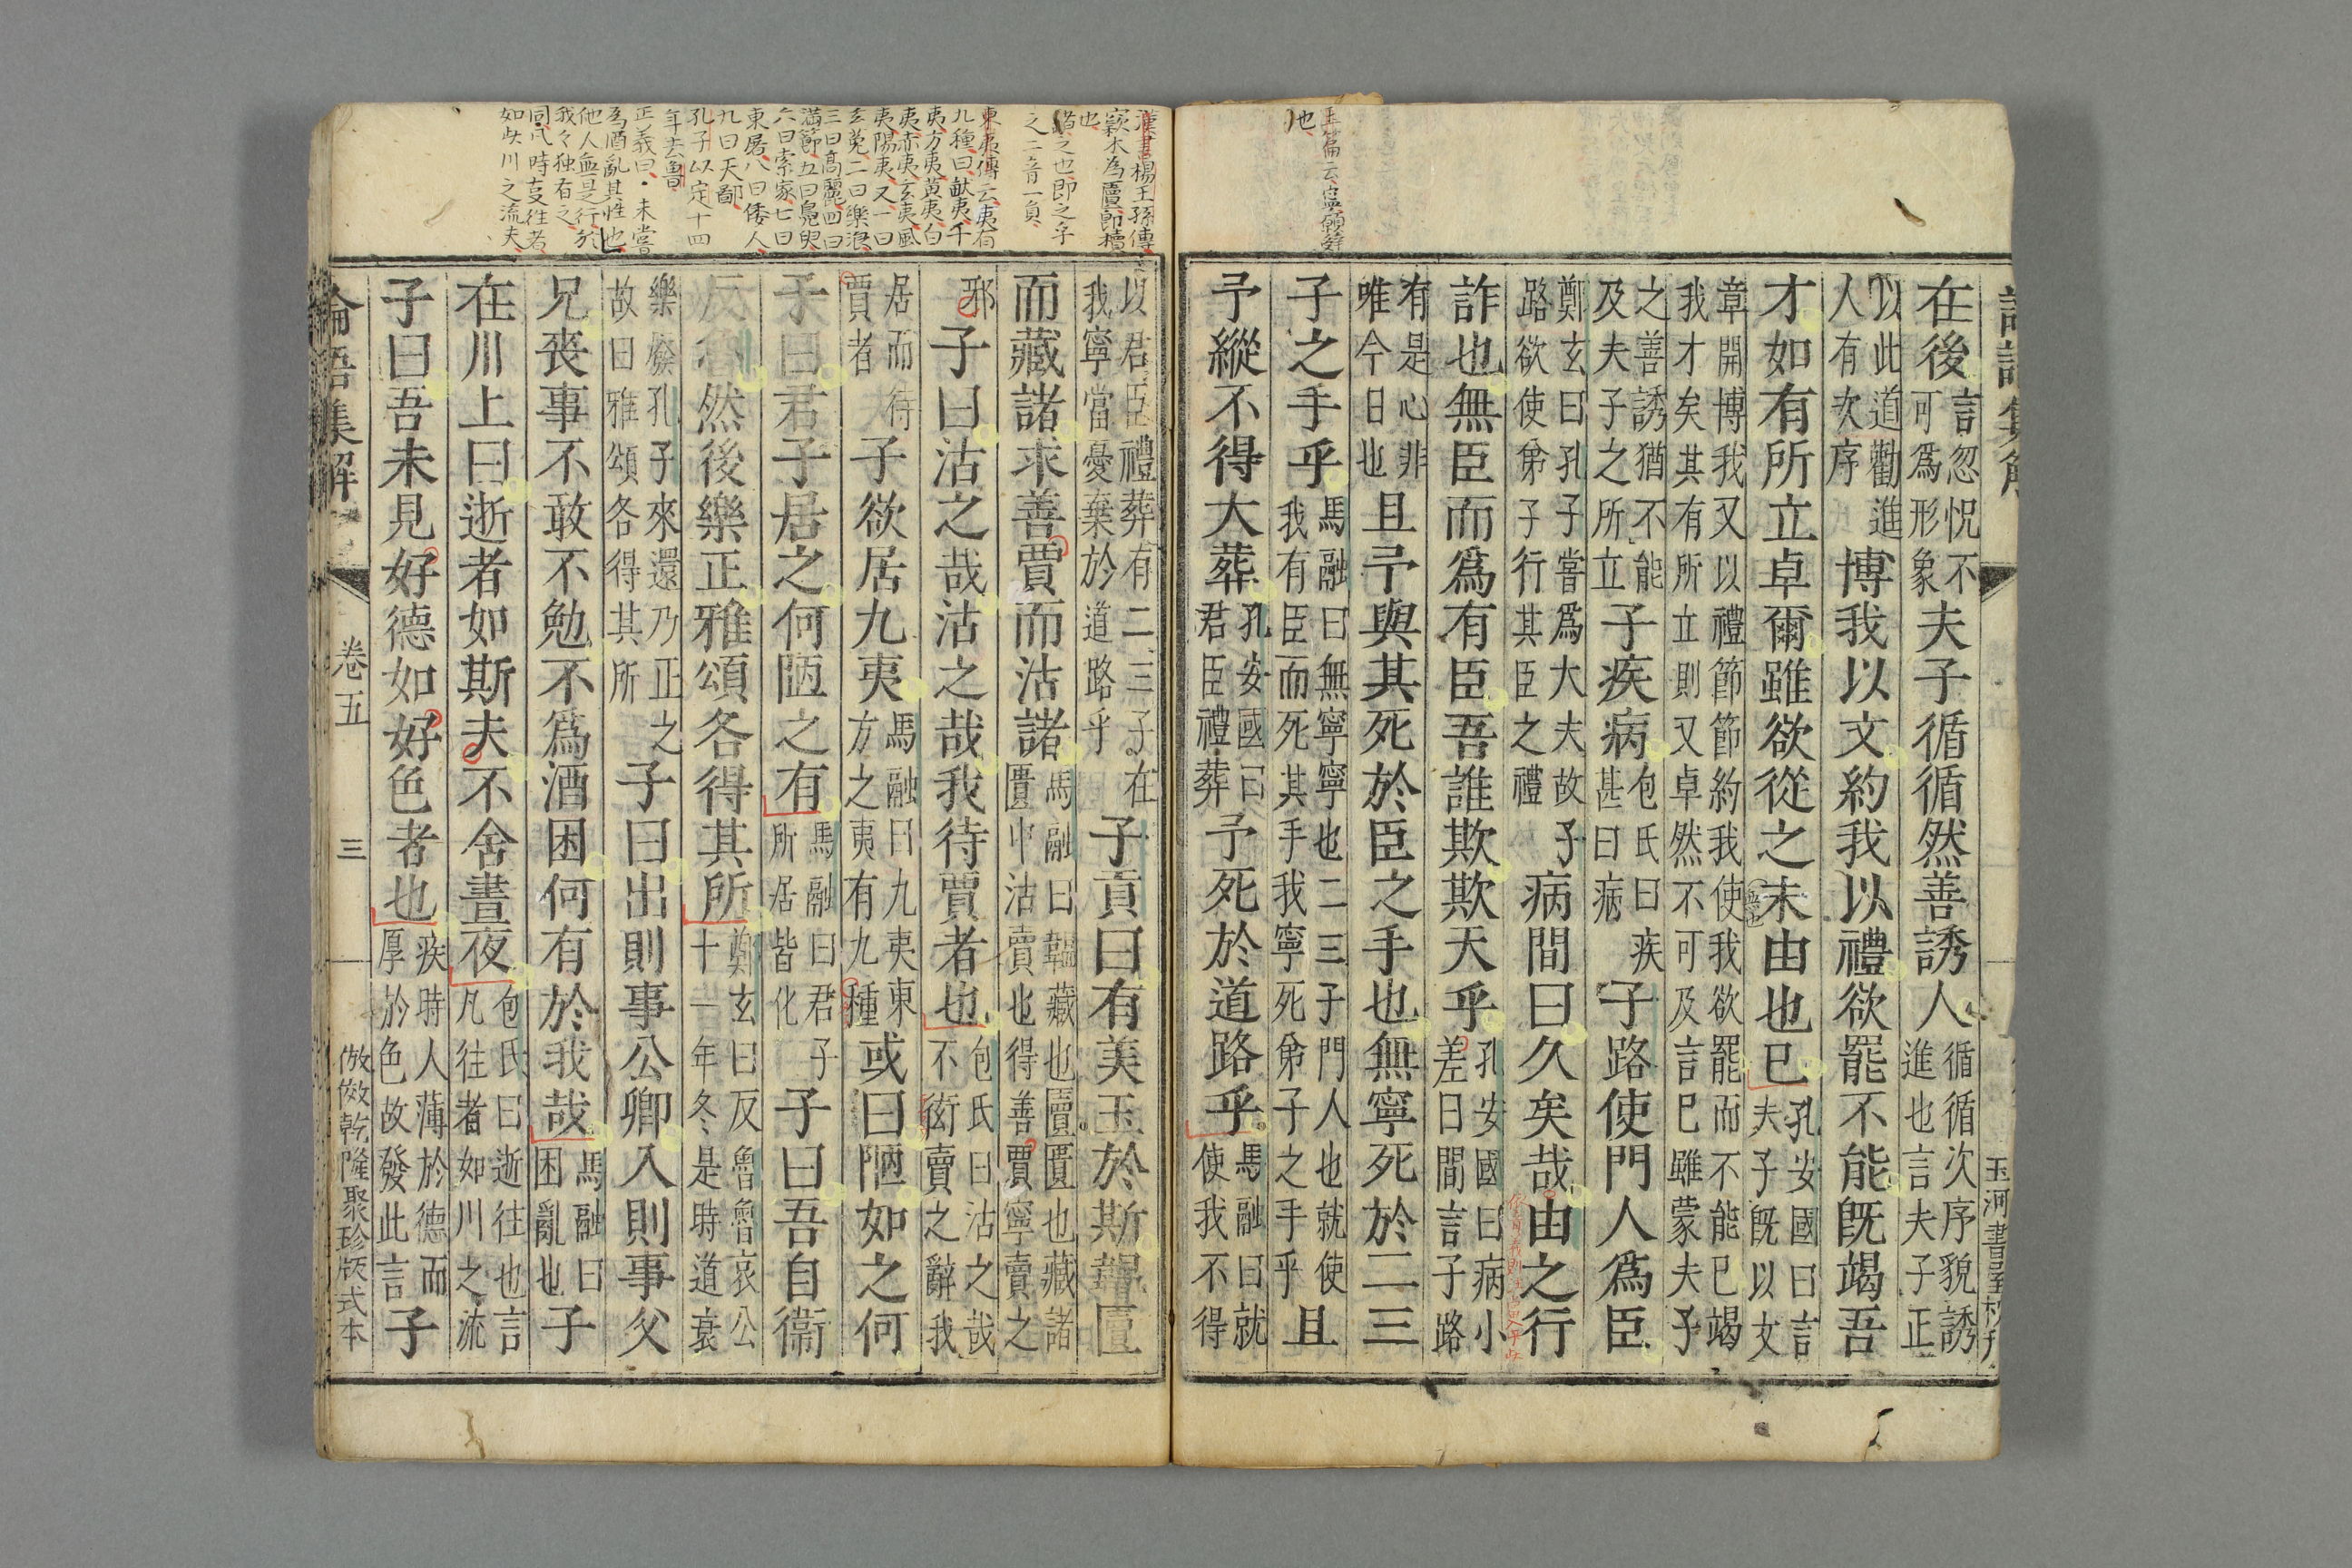 在後言忽怳不可爲形象夫子循循然善誘人循循次序貌誘進也言夫子正
以此道勸進人有次序博我以文約我以禮欲罷不能既竭吾
才如有所立卓爾雖欲從之末由也已孔安國曰言夫子既以文
章開博我又以禮節節約我使我欲罷而不能已竭我才矣其有所立則又卓然不可及言已雖蒙夫子
之善誘猶不能及夫子之所立子疾病包氏曰疾甚曰病子路使門人爲臣
鄭玄曰孔子嘗爲大夫故子路欲使弟子行其臣之禮病間曰久矣哉由之行
詐也無臣而爲有臣吾誰欺欺天乎孔安國曰病小差曰間言子路
有是心非唯今日也且予與其死於臣之手也無寧死於二三
子之手乎馬融曰無寧寧也二三子門人也就使我有臣而死其手我寧死弟子之手乎且
予縱不得大葬孔安國曰君臣禮葬予死於道路乎馬融曰就使我不得
以君臣禮葬有二三子在我寧當憂棄於道路乎子貢曰有美玉於斯韞匵
而藏諸求善賈而沽諸馬融曰韞藏也匵匱也藏諸匱中沽賣也得善賈寧賣之
邪子曰沽之哉沽之哉我待賈者也包氏曰沽之哉不衒賣之辭我
居而待賈者子欲居九夷馬融曰九夷東方之夷有九種或曰陋如之何
子曰君子居之何陋之有馬融曰君子所居皆化子曰吾自衞
反魯然後樂正雅頌各得其所鄭玄曰反魯魯哀公十一年冬是時道衰
樂廢孔子來還乃正之故曰雅頌各得其所子曰出則事公卿入則事父
兄喪事不敢不勉不爲酒困何有於我哉馬融曰困亂也子
在川上曰逝者如斯夫不舍晝夜包氏曰逝往也言凡往者如川之流
子曰吾未見好德如好色者也疾時人薄於德而厚於色故發此言子
論語集解 卷五 三 倣傚乾隆聚珍版式本
玉篇云寧願辞
也
漢書楊王孫傳
窾木為匵即櫝
也
諸之也即之乎
之二音一負
東夷傳云夷有
九種曰畎夷千
夷方夷黄夷白
夷赤夷玄夷風
夷陽夷又一曰
玄菟二曰樂浪
三曰高麗四曰
満節五曰鳧臾
六曰索家七曰
東屠八曰倭人
九曰天鄙
孔子以定十四
年去魯
正義曰未嘗
為酒亂其性也
他人無是之行於
我々独有之
同凡時事往者
如此川之流夫